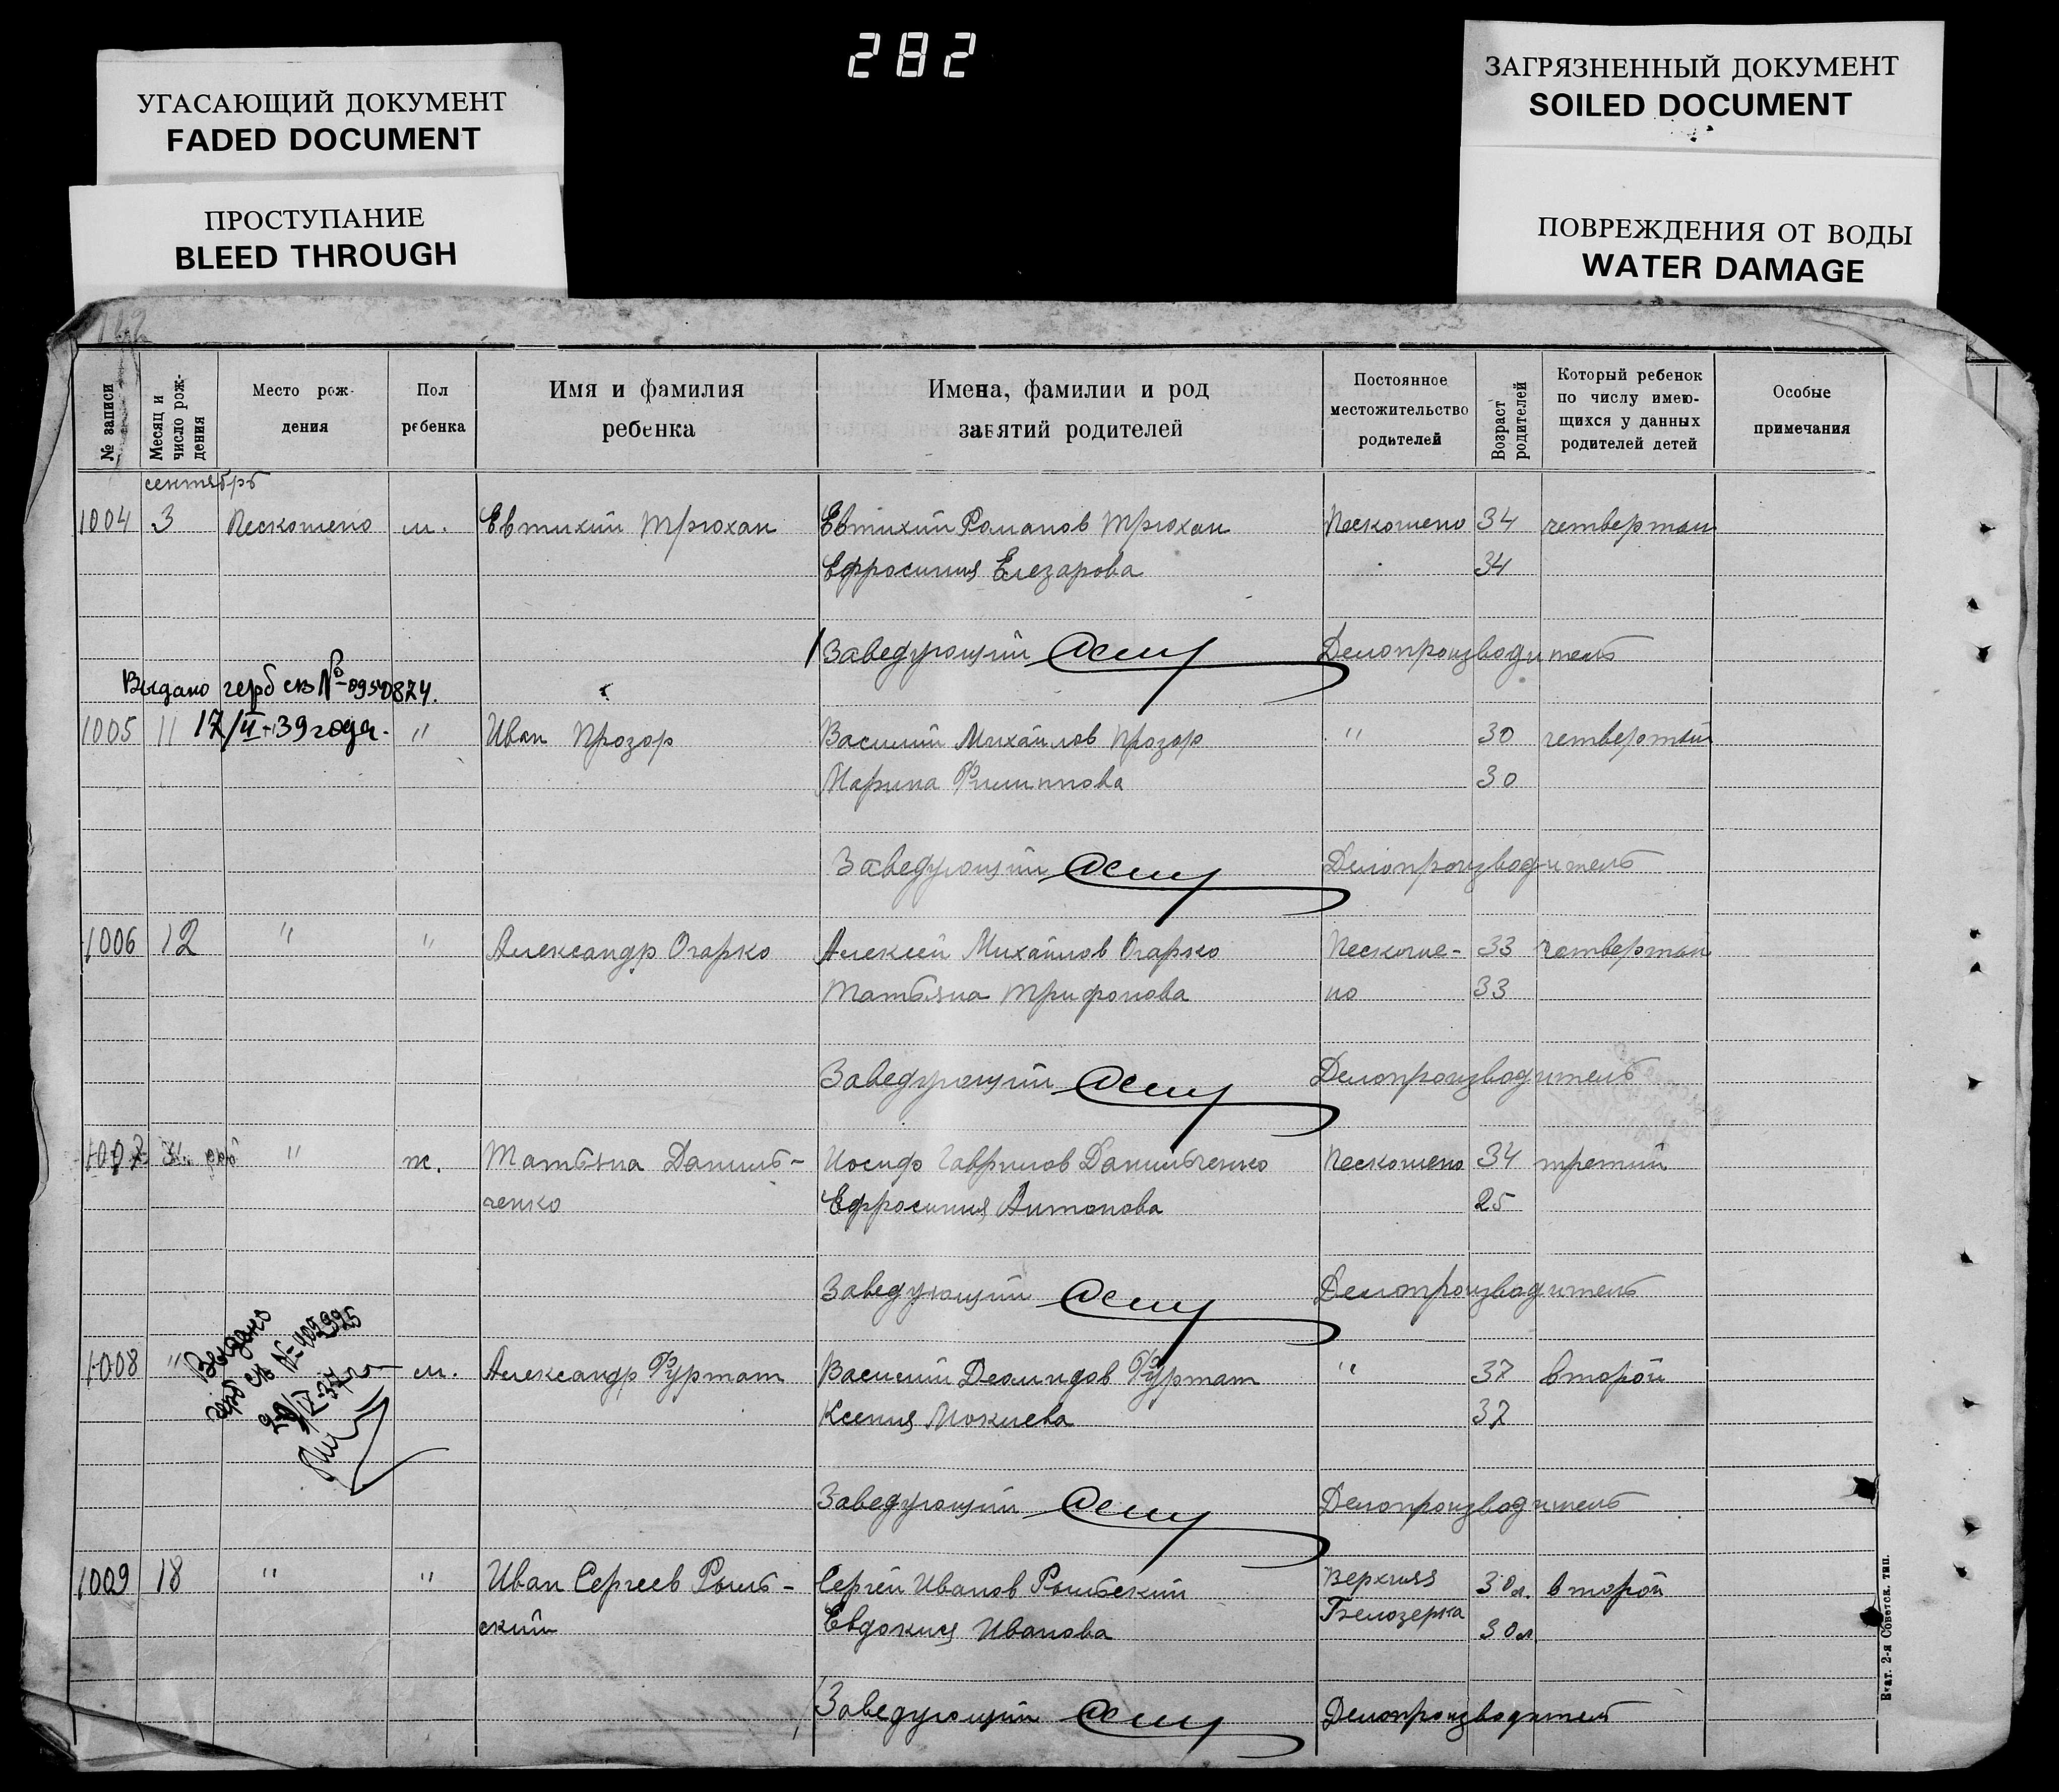 282
УГАСАЮЩИЙ ДОКУМЕНТ
FADED DOCUMENT
ПРОСТУПАНИЕ
BLEED THROUGH
ЗАГРЯЗНЕННЫЙ ДОКУМЕНТ
SOILED DOCUMENT
ПОВРЕЖДЕНИЯ ОТ ВОДЫ
WATER DAMAGE
№ записи
Месяц и число рождения
Место рождения
Пол ребенка
Имя и фамилия ребенка
Имена, фамилии и род занятий родителей
Постоянное местожительство родителей
Возраст родителей
Который ребенок по числу имеющихся у данных родителей детей
Особые примечания
сентябрь
1004 3 Пескошено м. Евтихий Трюхан Евтихий Романов Трюхан Пескошено 34 четвертый
Ефросиния Елезарова 34
Заведующий Делопроизводитель
Выдано герб св № 0950874.
17/II-39 года.
1005 11 " Иван Прозор Василий Михайлов Прозор " 30 четвертый
Марина Филиппова 30
Заведующий Делопроизводитель
1006 12 " " Александр Огарко Алексей Михайлов Огарко Пескоше- 33 четвертый
Татьяна Трифонова но 33
Заведующий Делопроизводитель
1007 " ж. Татьяна Даниль- Иосиф Гаврилов Данильченко Пескошено 34 третий
ченко Ефросиния Антонова 25
Заведующий Делопроизводитель
Выдано
герб св №
1008 " м. Александр Фурман Василий Демидов Фурман " 37 второй
Ксения Мокиева 37
Заведующий Делопроизводитель
1009 18 " " Иван Сергеев Рыль- Сергей Иванов Рыльский Верхняя 30 л. второй
ский Евдокия Иванова Белозерка 30 л.
Заведующий Делопроизводитель
Екат. 2-я Советск. тип.